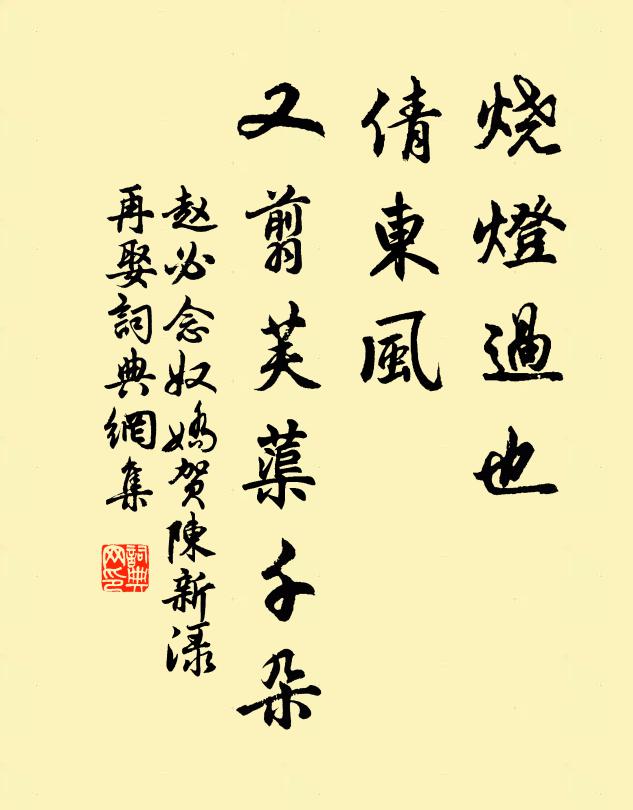 烧燈過也
倩東風
又翦芙蕖千朵
赵必念奴嬌贺陳新渌
再娶詞典網集
詞典网印